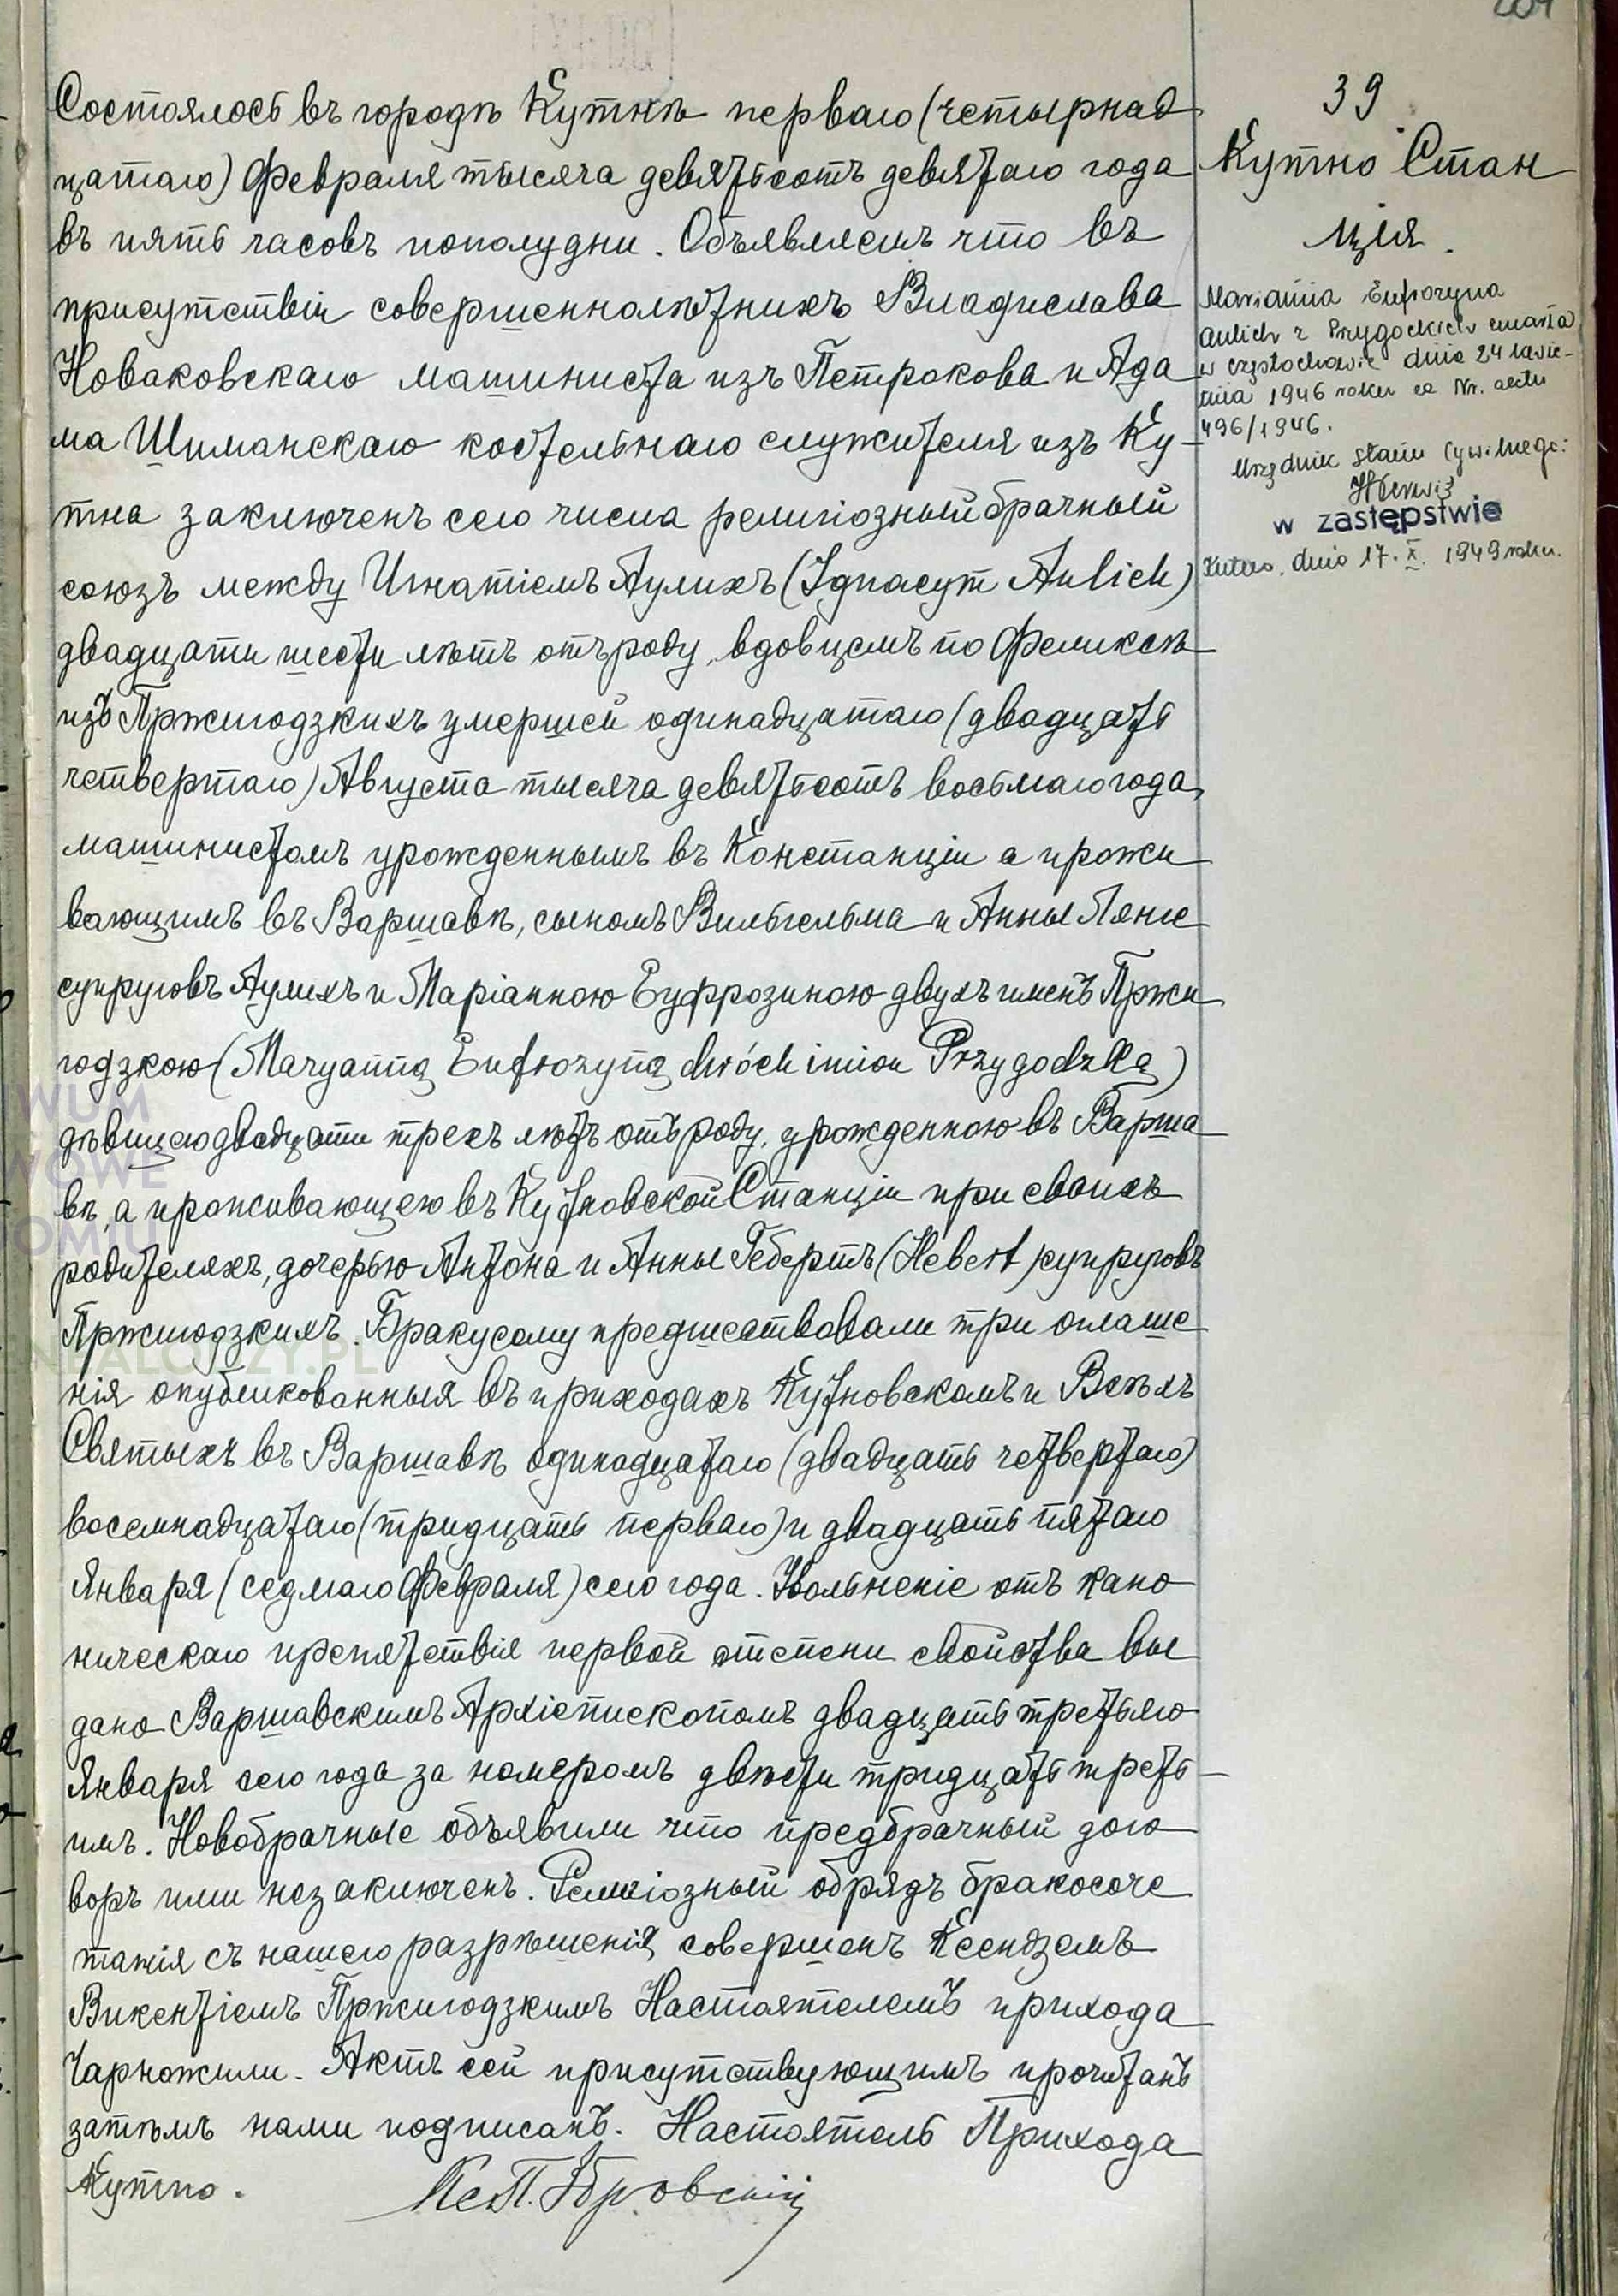 204
39
Кутно Стан
ція.
Состоялось въ городѣ Кутнѣ перваго (четырнад
цатаго) Февраля тысяча девятьсотъ девятаго года
въ пять часовъ пополудни. Объявляемъ что въ
присутствіи совершеннолѣтнихъ Владислава
Новаковскаго машиниста изъ Петрокова и Ада
ма Шиманскаго костельнаго служителя изъ Ку-
тна заключенъ сего числа религіозный брачный
союзъ между Игнатіемъ Аулихъ (Ignacym Aulich)
двадцати шести лѣтъ отъ роду, вдовцемъ по Феликсѣ
изъ Пржигодзкихъ умершей одинадцатаго (двадцать
четвертаго) Августа тысяча девятьсотъ восьмаго года,
машинистомъ урожденнымъ въ Констанціи а прожи
вающимъ въ Варшавѣ, сыномъ Вильгельма и Анны Ланге
супруговъ Аулихъ и Маріанною Еуфрозиною двухъ именъ Пржи
годзкою (Maryanną Eufrozyną dwóch imion Przygodzką)
дѣвицею двадцати трехъ лѣтъ отъ роду, урожденною въ Варша
вѣ, а проживающею въ Кутновской Станціи при своихъ
родителяхъ, дочерью Антона и Анны Гебертъ (Hebert) супруговъ
Пржигодзкихъ. Браку сему предшествовали три оглаше
нія опубликованныя въ приходахъ Кутновскомъ и Всѣхъ
Святыхъ въ Варшавѣ одинадцатаго (двадцать четвертаго)
восемнадцатаго (тридцать перваго) и двадцать пятаго
Января (седмаго Февраля) сего года. Увольненіе отъ кано
ническаго препятствія первой степени свойства вы
дано Варшавскимъ Архіепископомъ двадцать третьяго
Января сего года за номеромъ двѣсти тридцать треть-
имъ. Новобрачные объявили что предбрачный дого
воръ ими незаключенъ. Религіозный обрядъ бракосоче
танія съ нашего разрѣшенія совершенъ Ксендземъ
Викентіемъ Пржигодзкимъ Настоятелемъ прихода
Чарножили. Актъ сей присутствующимъ прочитанъ
затѣмъ нами подписанъ. Настоятель Прихода
Кутно.
Marianna Eufrozyna
Aulich z Przygodzkich zmarła
w Częstochowie dnia 24 kwie-
tnia 1946 roku za Nr. aktu
496/1946.
Urzędnik Stanu Cywilnego:
w zastępstwie
Kutno, dnia 17.X. 1949 roku.